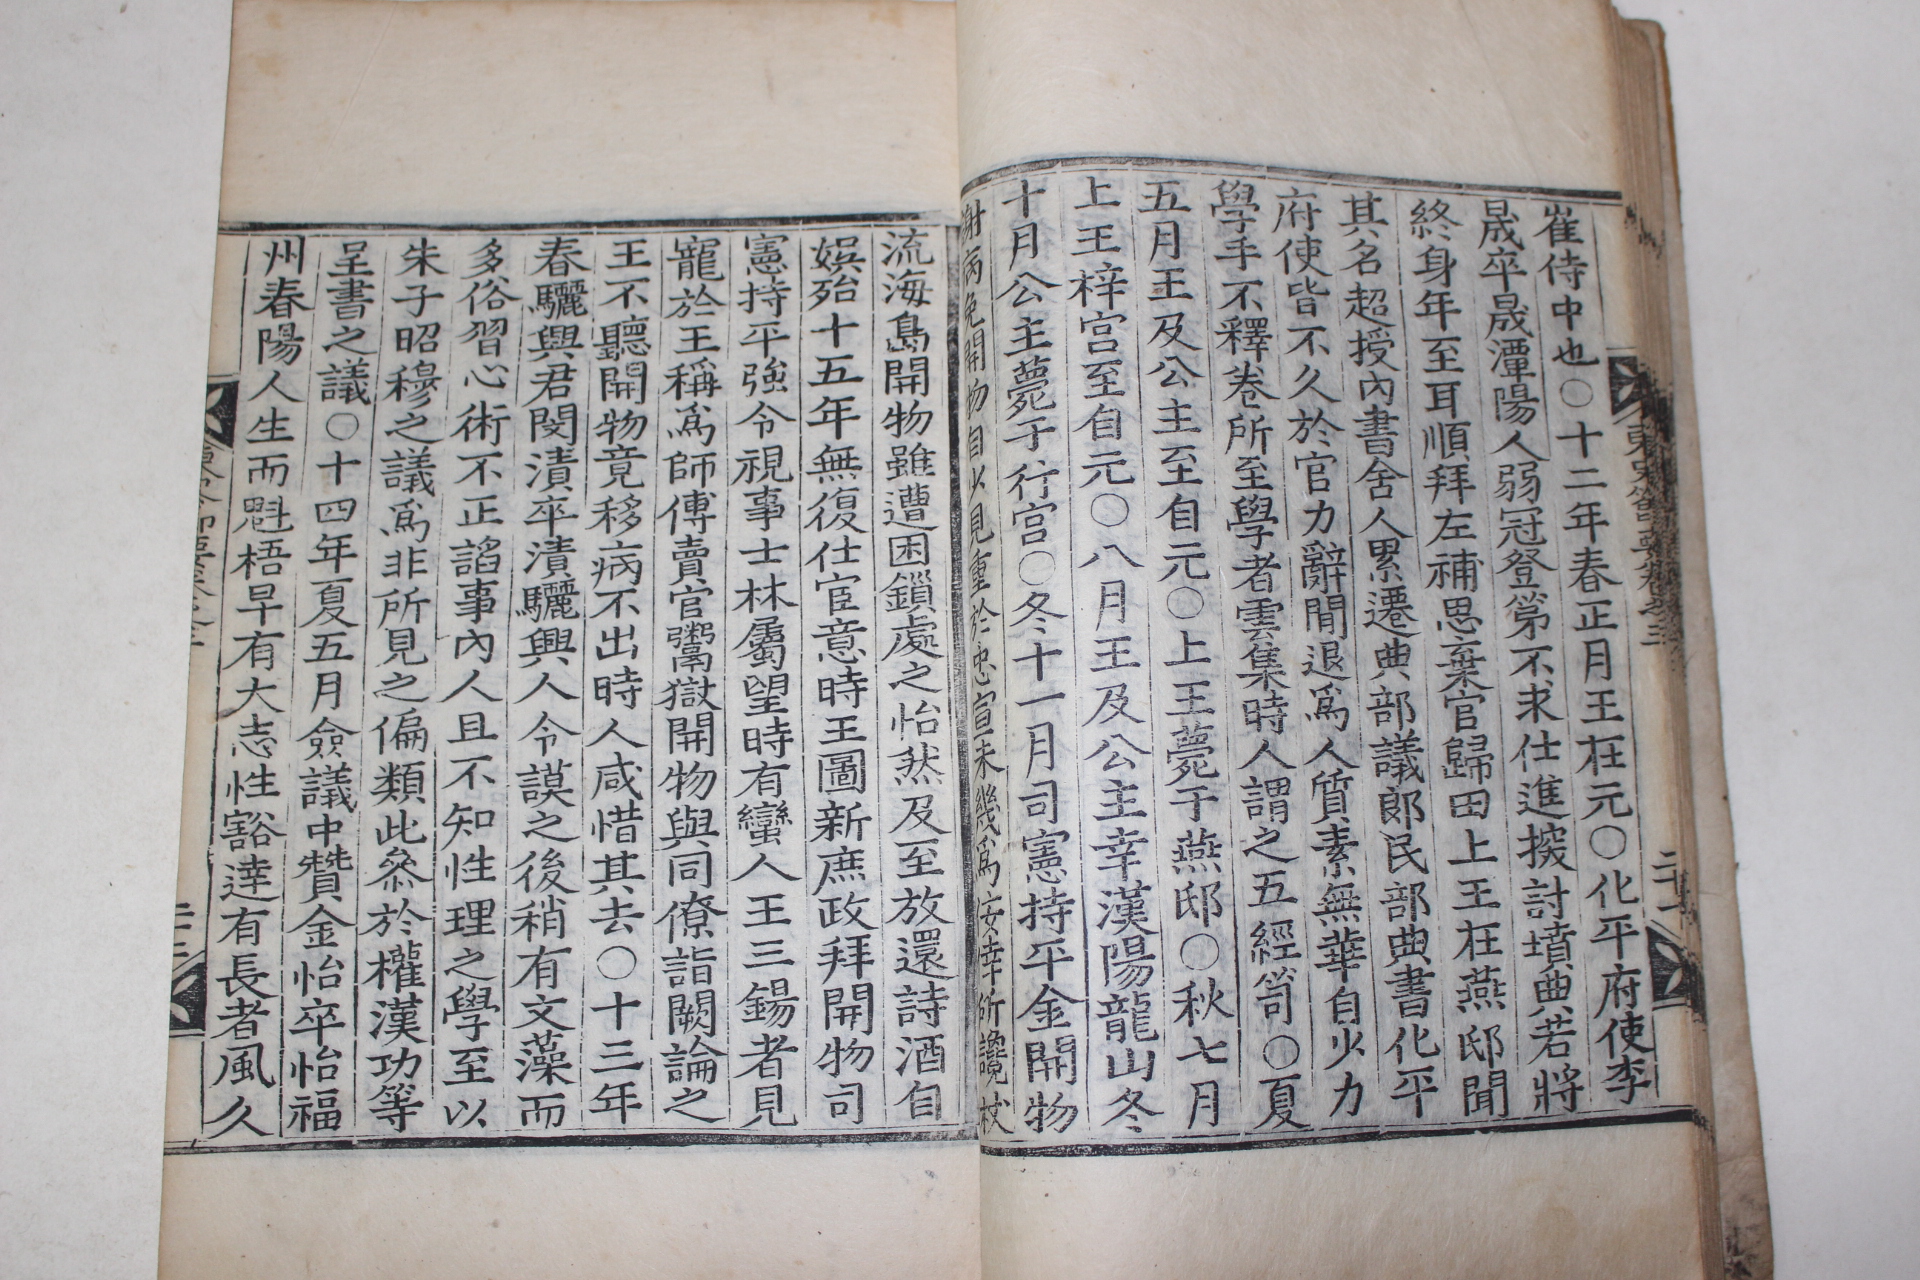 崔侍中也○十二年春正月王在元○化平府使李
晟卒晟潭陽人弱冠登第不求仕進搜討墳典若將
終身年至耳順拜左補思棄官歸田上王在燕邸聞
其名超授內書舍人累遷典部議郎民部典書化平
府使皆不久於官力辭閒退爲人質素無華自火力
學手不釋卷所至學者雲集時人謂之五經笥○夏
五月王及公主至自元○上王薨于燕邸○秋七月
上王梓宮至自元○八月王及公主幸漢陽龍山冬
十月公主薨于行宮○冬十一月司憲持平金開物
謝病免開物自以見重於忠宣未幾爲安幸所讒杖
流海島開物雖遭困鎖處之怡然及至放還詩酒自
娛殆十五年無復仕宦意時王圖新庶政拜開物司
憲持平強令視事士林屬望時有蠻人王三錫者見
寵於王稱爲師傅賣官鬻獄開物與同僚詣闕論之
王不聽開物竟移病不出時人咸惜其去○十三年
春驪興君閔漬卒漬驪興人令謨之後稍有文藻而
多俗習心術不正諂事內人且不知性理之學至以
朱子昭穆之議爲非所見之偏類此參於權漢功等
呈書之議○十四年夏五月僉議中贊金怡卒怡福
州春陽人生而魁梧早有大志性豁達有長者風久
東史會要卷之三
二十二
二十三